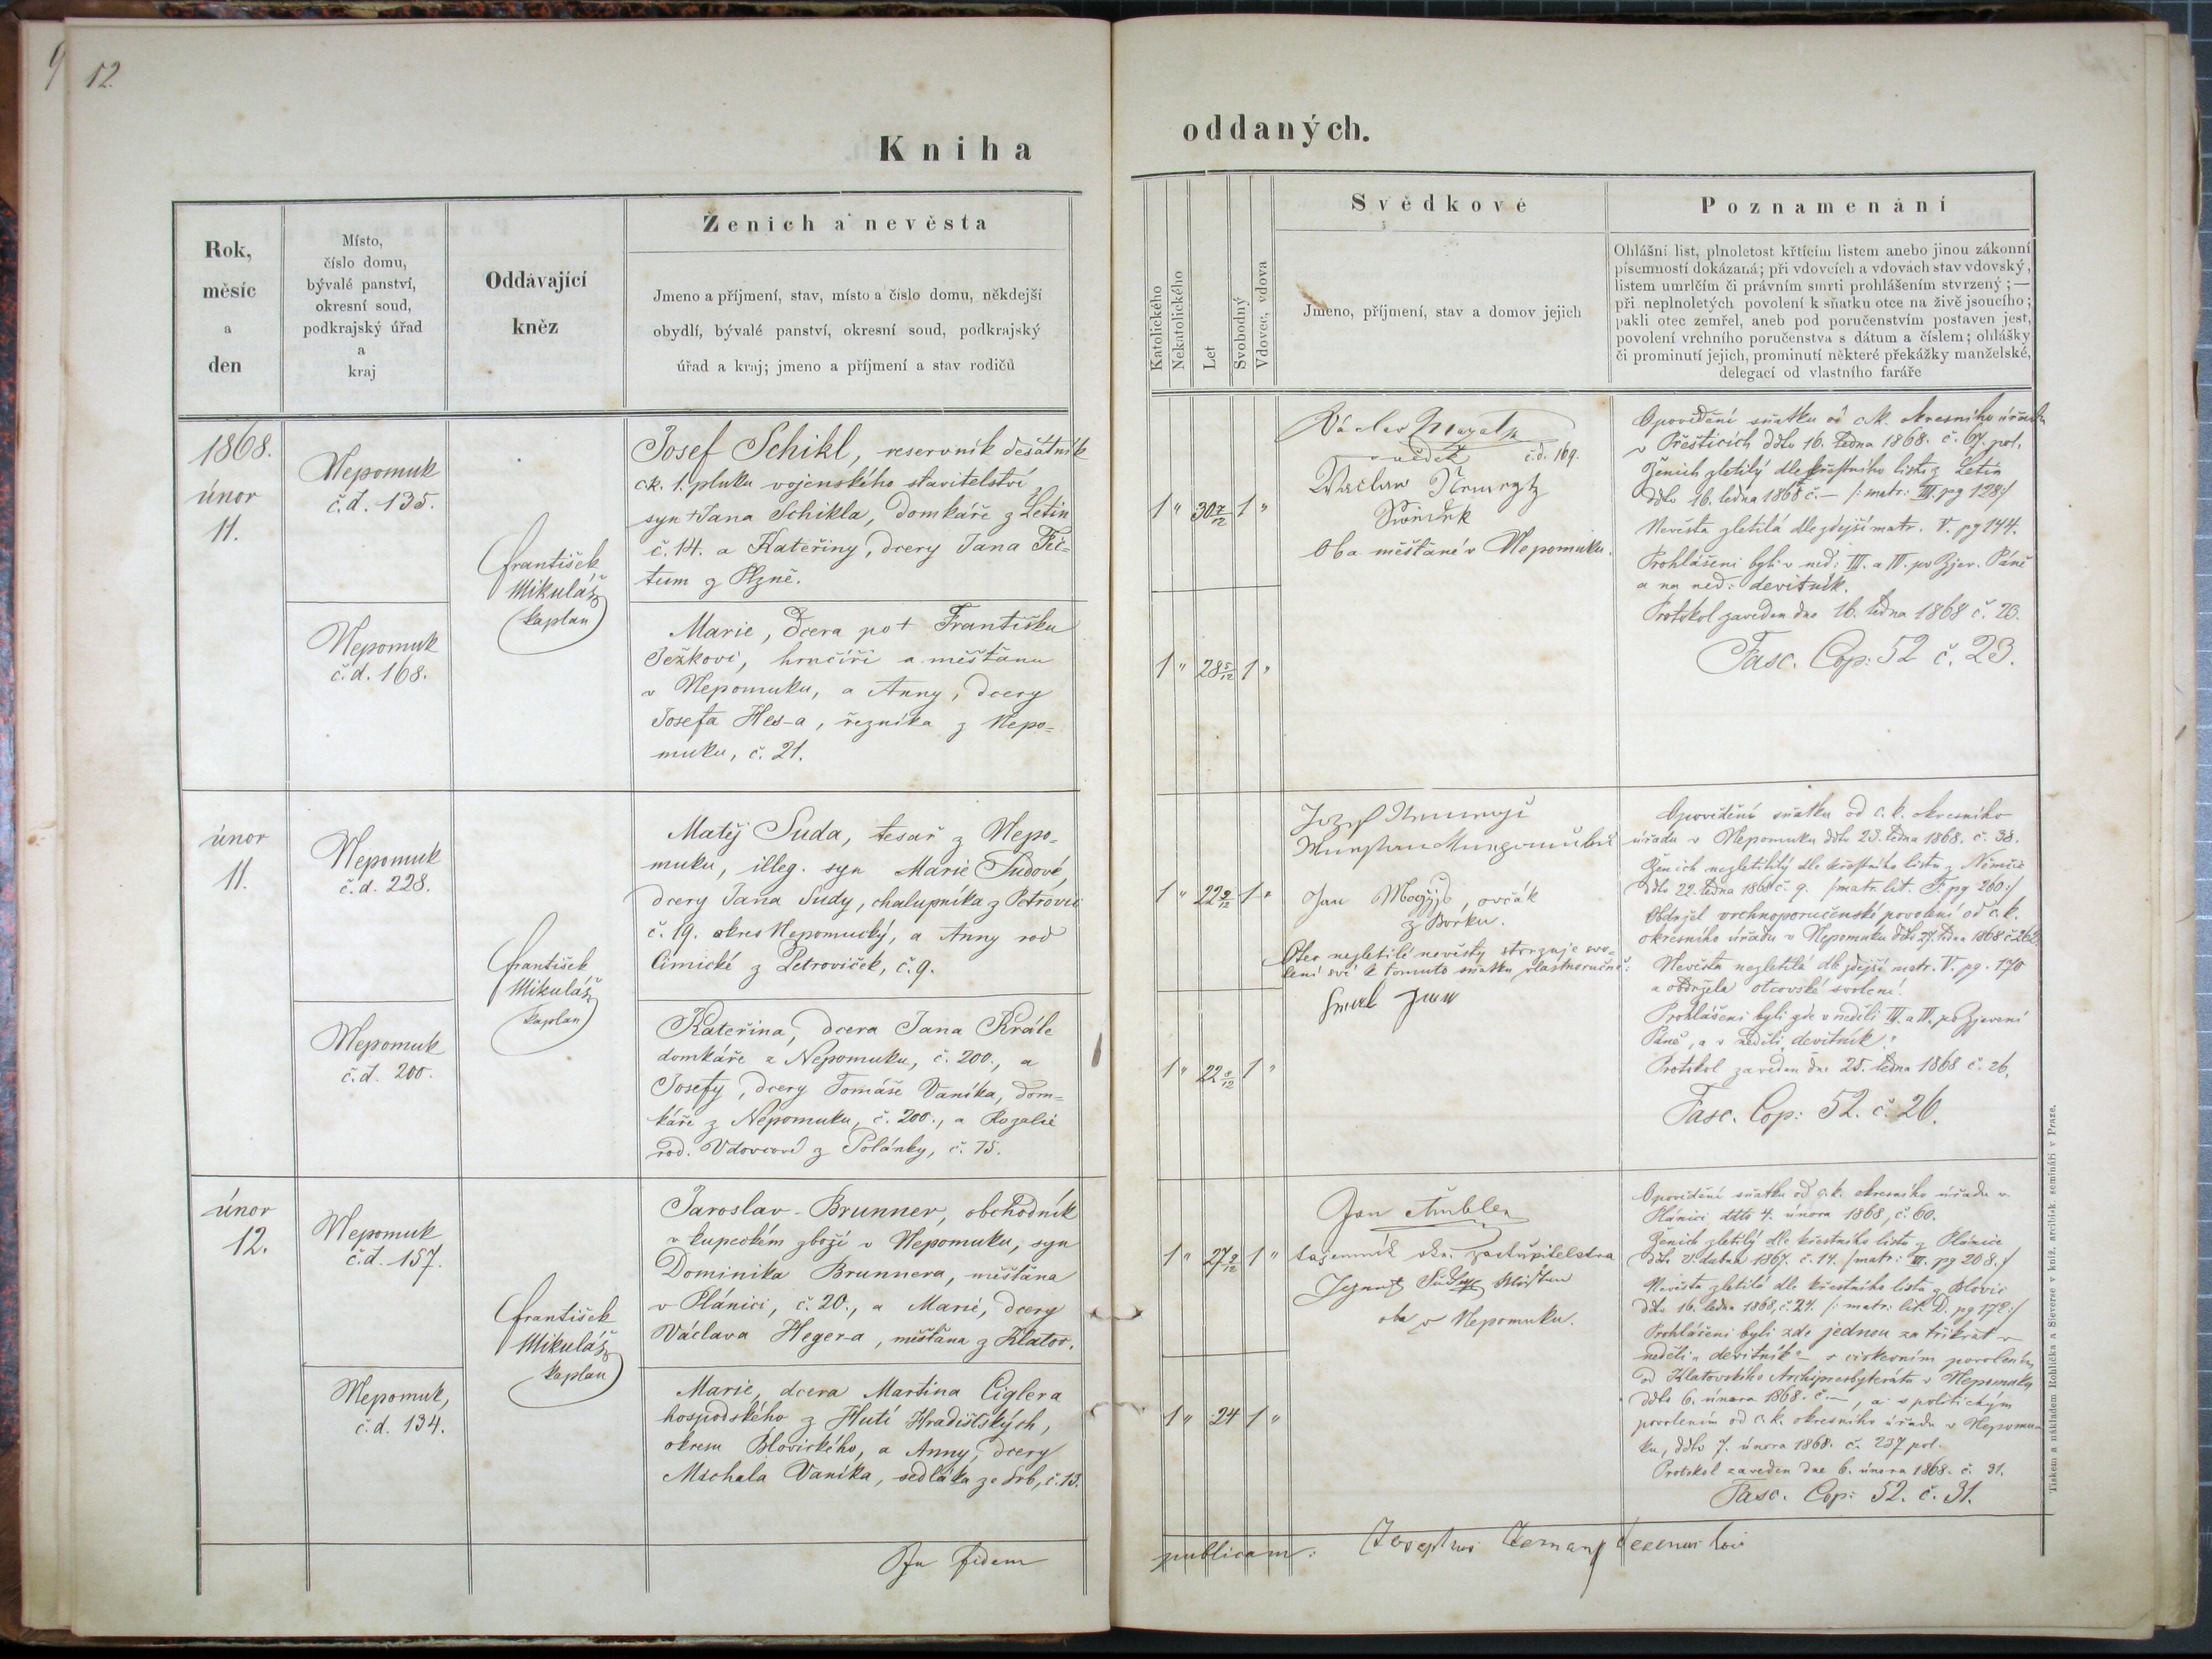 12.
Kniha
oddaných.
Rok,
měsíc
a
den
Místo,
číslo domu,
bývalé panství,
okresní soud,
podkrajský úřad
a
kraj
Oddávající
kněz
Ženich a nevěsta
Jmeno a příjmení, stav, místo a číslo domu, někdejší
obydlí, bývalé panství, okresní soud, podkrajský
úřad a kraj; jmeno a příjmení a stav rodičů
Katolického
Nekatolického
Let
Svobodný
Vdovec, vdova
Svědkové
Jmeno, příjmení, stav a domov jejich
Poznamenání
Ohlášní list, plnoletost křtícím listem anebo jinou zákonní
písemností dokázaná; při vdovcích a vdovách stav vdovský,
listem umrlčím či právním smrti prohlášením stvrzený; —
při neplnoletých povolení k sňatku otce na živě jsoucího;
pakli otec zemřel, aneb pod poručenstvím postaven jest,
povolení vrchního poručenstva s dátum a číslem; ohlášky
či prominutí jejich, prominutí některé překážky manželské,
delegací od vlastního faráře
1868.
únor
11.
Nepomuk
č.d. 135.
František
Mikuláš
kaplan
Josef Schikl, reservník desátník
c.k. 1. pluku vojenského stavitelství,
syn †Jana Schikla, domkáře z Letin
č. 14. a Kateřiny, dcery Jana
tum z Plzně.
1 " 30 7/12 1 "
Václav
svědek č.d. 169.
Waclaw
Oba měšťané v Nepomuku.
Opovědění sňatku od c.k. okresního úřadu
v Přešticích ddto 16. ledna 1868. č. 67. pol.
Ženich zletilý dle křestního listu z Letin
ddto 16. ledna 1868 č. — /: matr: III. pg 128:/
Nevěsta zletilá dle zdejší matr. V. pg 144.
Prohlášeni byli v ned: III. a IV. po Zjev. Páně
a na ned: devítník.
Protokol zaveden dne 16. ledna 1868 č. 23.
Fasc. Cop: 52 č. 23.
Nepomuk
č.d. 168.
Marie, dcera po † Františku
Ježkovi, hrnčíři a měšťanu
v Nepomuku, a Anny, dcery
Josefa Hes-a, řezníka z Nepo-
muku, č. 21.
1 " 28 5/12 1 "
únor
11.
Nepomuk
č.d. 228.
František
Mikuláš
kaplan
Matěj Suda, tesař z Nepo-
muku, illeg. syn Marie Sudové,
dcery Jana Sudy, chalupníka z Petrovic
č. 19. okres Nepomucký, a Anny rod
Cimické z Petroviček, č. 9.
1 " 22 9/12 1 "
Jozef
Jan , ovčák
z Borku.
Otec nezletilé nevěsty stvrzuje svo-
lení své k tomuto sňatku vlastnoručně:
Opovědění sňatku od c.k. okresního
úřadu v Nepomuku ddto 23. ledna 1868. č. 38.
Ženich nezletilý dle křestního listu z
ddto 22. ledna 1868 č. 9. /matr. lit. F. pg 260:/
Obdržel vrchnoporučenské povolení od c.k.
okresního úřadu v Nepomuku ddto 27. ledna 1868 č. 262.
Nevěsta nezletilá dle zdejší matr. V. pg. 170
a obdržela otcovské svolení.
Prohlášeni byli zde v neděli III. a IV. po Zjevení
Páně, a v neděli devítník.
Protokol zaveden dne 25. ledna 1868 č. 26.
Fasc. Cop: 52. č. 26.
Nepomuk
č.d. 200.
Kateřina, dcera Jana Krále
domkáře z Nepomuku, č. 200., a
Josefy, dcery Tomáše Vaníka, dom-
káře z Nepomuku, č. 200., a Rozalie
rod. Vdovcové z Polánky, č. 75.
1 " 22 8/12 1 "
únor
12.
Nepomuk
č.d. 157.
František
Mikuláš
kaplan
Jaroslav Brunner, obchodník
v kupeckém zboží v Nepomuku, syn
Dominika Brunnera, měšťana
v Plánici, č. 20., a Marie, dcery
Václava Heger-a, měšťana z Klatov.
1 " 27 9/12 1 "
Jan
tajemník okr. zastupitelstva
oba v Nepomuku.
Opovědění sňatku od c.k. okresního úřadu v
Plánici ddto 4. února 1868, č. 60.
Ženich zletilý dle křestního listu z Plánice
ddto 21. dubna 1867. č. 14. /matr: III. pg 208:/
Nevěsta zletilá dle křestního listu z Blovic
ddto 16. ledna 1868, č. 24. /: matr: lit. D. pg 172:/
Prohlášeni byli zde jednou za třikrát v
neděli „devítník" s církevním povolením
od Klatovského Archipresbyterátu v Nepomuku
ddto 6. února 1868. č. —, a s politickým
povolením od c.k. okresního úřadu v Nepomu-
ku, ddto 7. února 1868. č. 237 pol.
Protokol zaveden dne 6. února 1868. č. 31.
Fasc. Cop: 52. č. 31.
Nepomuk,
č.d. 134.
Marie, dcera Martina Ciglera
hospodského z Hutí Hradišťských,
okresu Blovického, a Anny, dcery
Michala Vaníka, sedláka ze Srb, č. 13.
1 " 24 1 "
In fidem
publicam: Josephus
Tiskem a nákladem Rohlíčka a Sieverse v kníž. arcibisk. semináři v Praze.